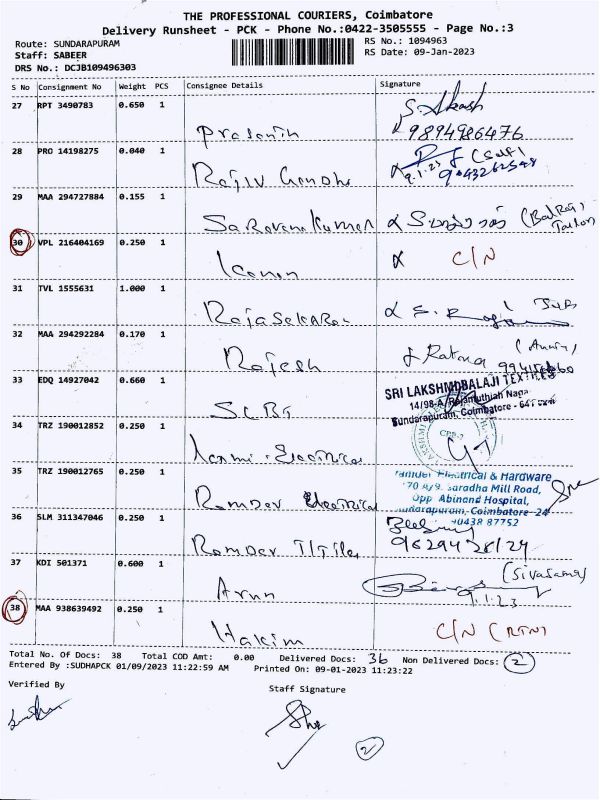 THE PROFESSIONAL COURIERS, Coimbatore
Delivery Runsheet - PCK - Phone No.:0422-3505555 - Page No.:3
Route: SUNDARAPURAM
RS No.: 1094963
Staff: SABEER
RS Date: 09-Jan-2023
DRS No.: DCJB109496303
S No Consignment No Weight PCS Consignee Details Signature
27 RPT 3490783 0.650 1
S. Akash
Prasanth 9894986476
28 PRO 14198275 0.040 1
(Self)
Rajiv Gandhi 9.1.23
29 MAA 294727884 0.155 1
Saravana Kumar
30 VPL 216404169 0.250 1
C/N
Kannan
31 TVL 1555631 1.000 1
Rajasekaran
32 MAA 294292284 0.170 1
Rajesh Ratna
33 EDQ 14927042 0.660 1
SRI LAKSHMI BALAJI TEX
14/98-A, Rajamuthiah Naga
Sundarapuram, Coimbatore -
34 TRZ 190012852 0.250 1
Laxmi Electricals
35 TRZ 190012765 0.250 1
Electrical & Hardware
Saradha Mill Road,
Opp Abinand Hospital,
Coimbatore-24
90438 87752
Ramdev Electricals
36 SLM 311347046 0.250 1
Ramdev Tiles
37 KDI 501371 0.600 1
(Sivasamy)
Arun 9.1.23
38 MAA 938639492 0.250 1
C/N (RTN)
Hakim
Total No. Of Docs: 38 Total COD Amt: 0.00 Delivered Docs: 36 Non Delivered Docs: 2
Entered By :SUDHAPCK 01/09/2023 11:22:59 AM Printed On: 09-01-2023 11:23:22
Verified By
Staff Signature
2